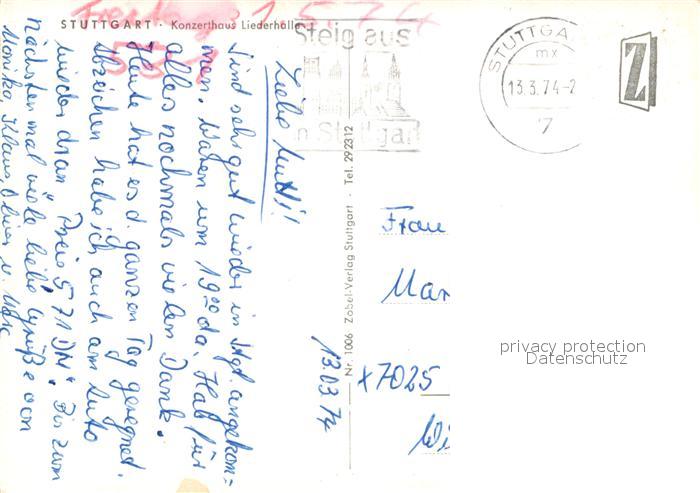 STUTTGART · Konzerthaus Liederhalle
Freitag 1.5.74
Steig aus
in Stuttgart
STUTTGA
mx
13.3.74-2
7
Z
13.03.74
Liebe Mutti!
Sind sehr gut wieder in Stgt. angekom=
men. Waren um 19°° da. Hab für
alles nochmals vielen Dank.
Heute hat es d. ganzen Tag geregnet.
Abzeichen habe ich auch am Auto
wieder dran. Preis 5,71 DM. Bis zum
nächsten mal viele liebe Grüße von
Monika, Klaus, Oliver u.
Nr. 1006 Zobel-Verlag Stuttgart · Tel. 292312
Frau
Mar
x7025
privacy protection
Datenschutz